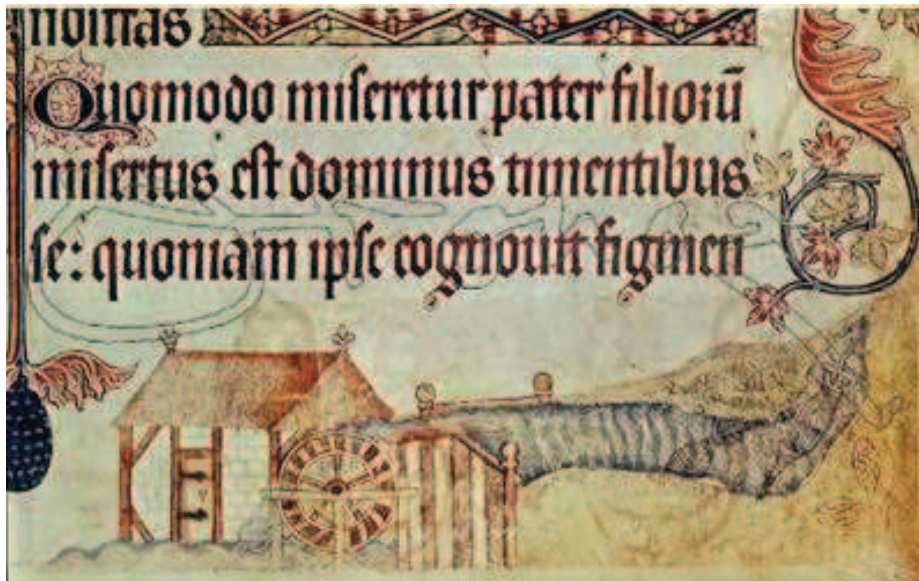 nostras
Quomodo miseretur pater filiorū
misertus est dominus timentibus
se: quoniam ipse cognouit figmen